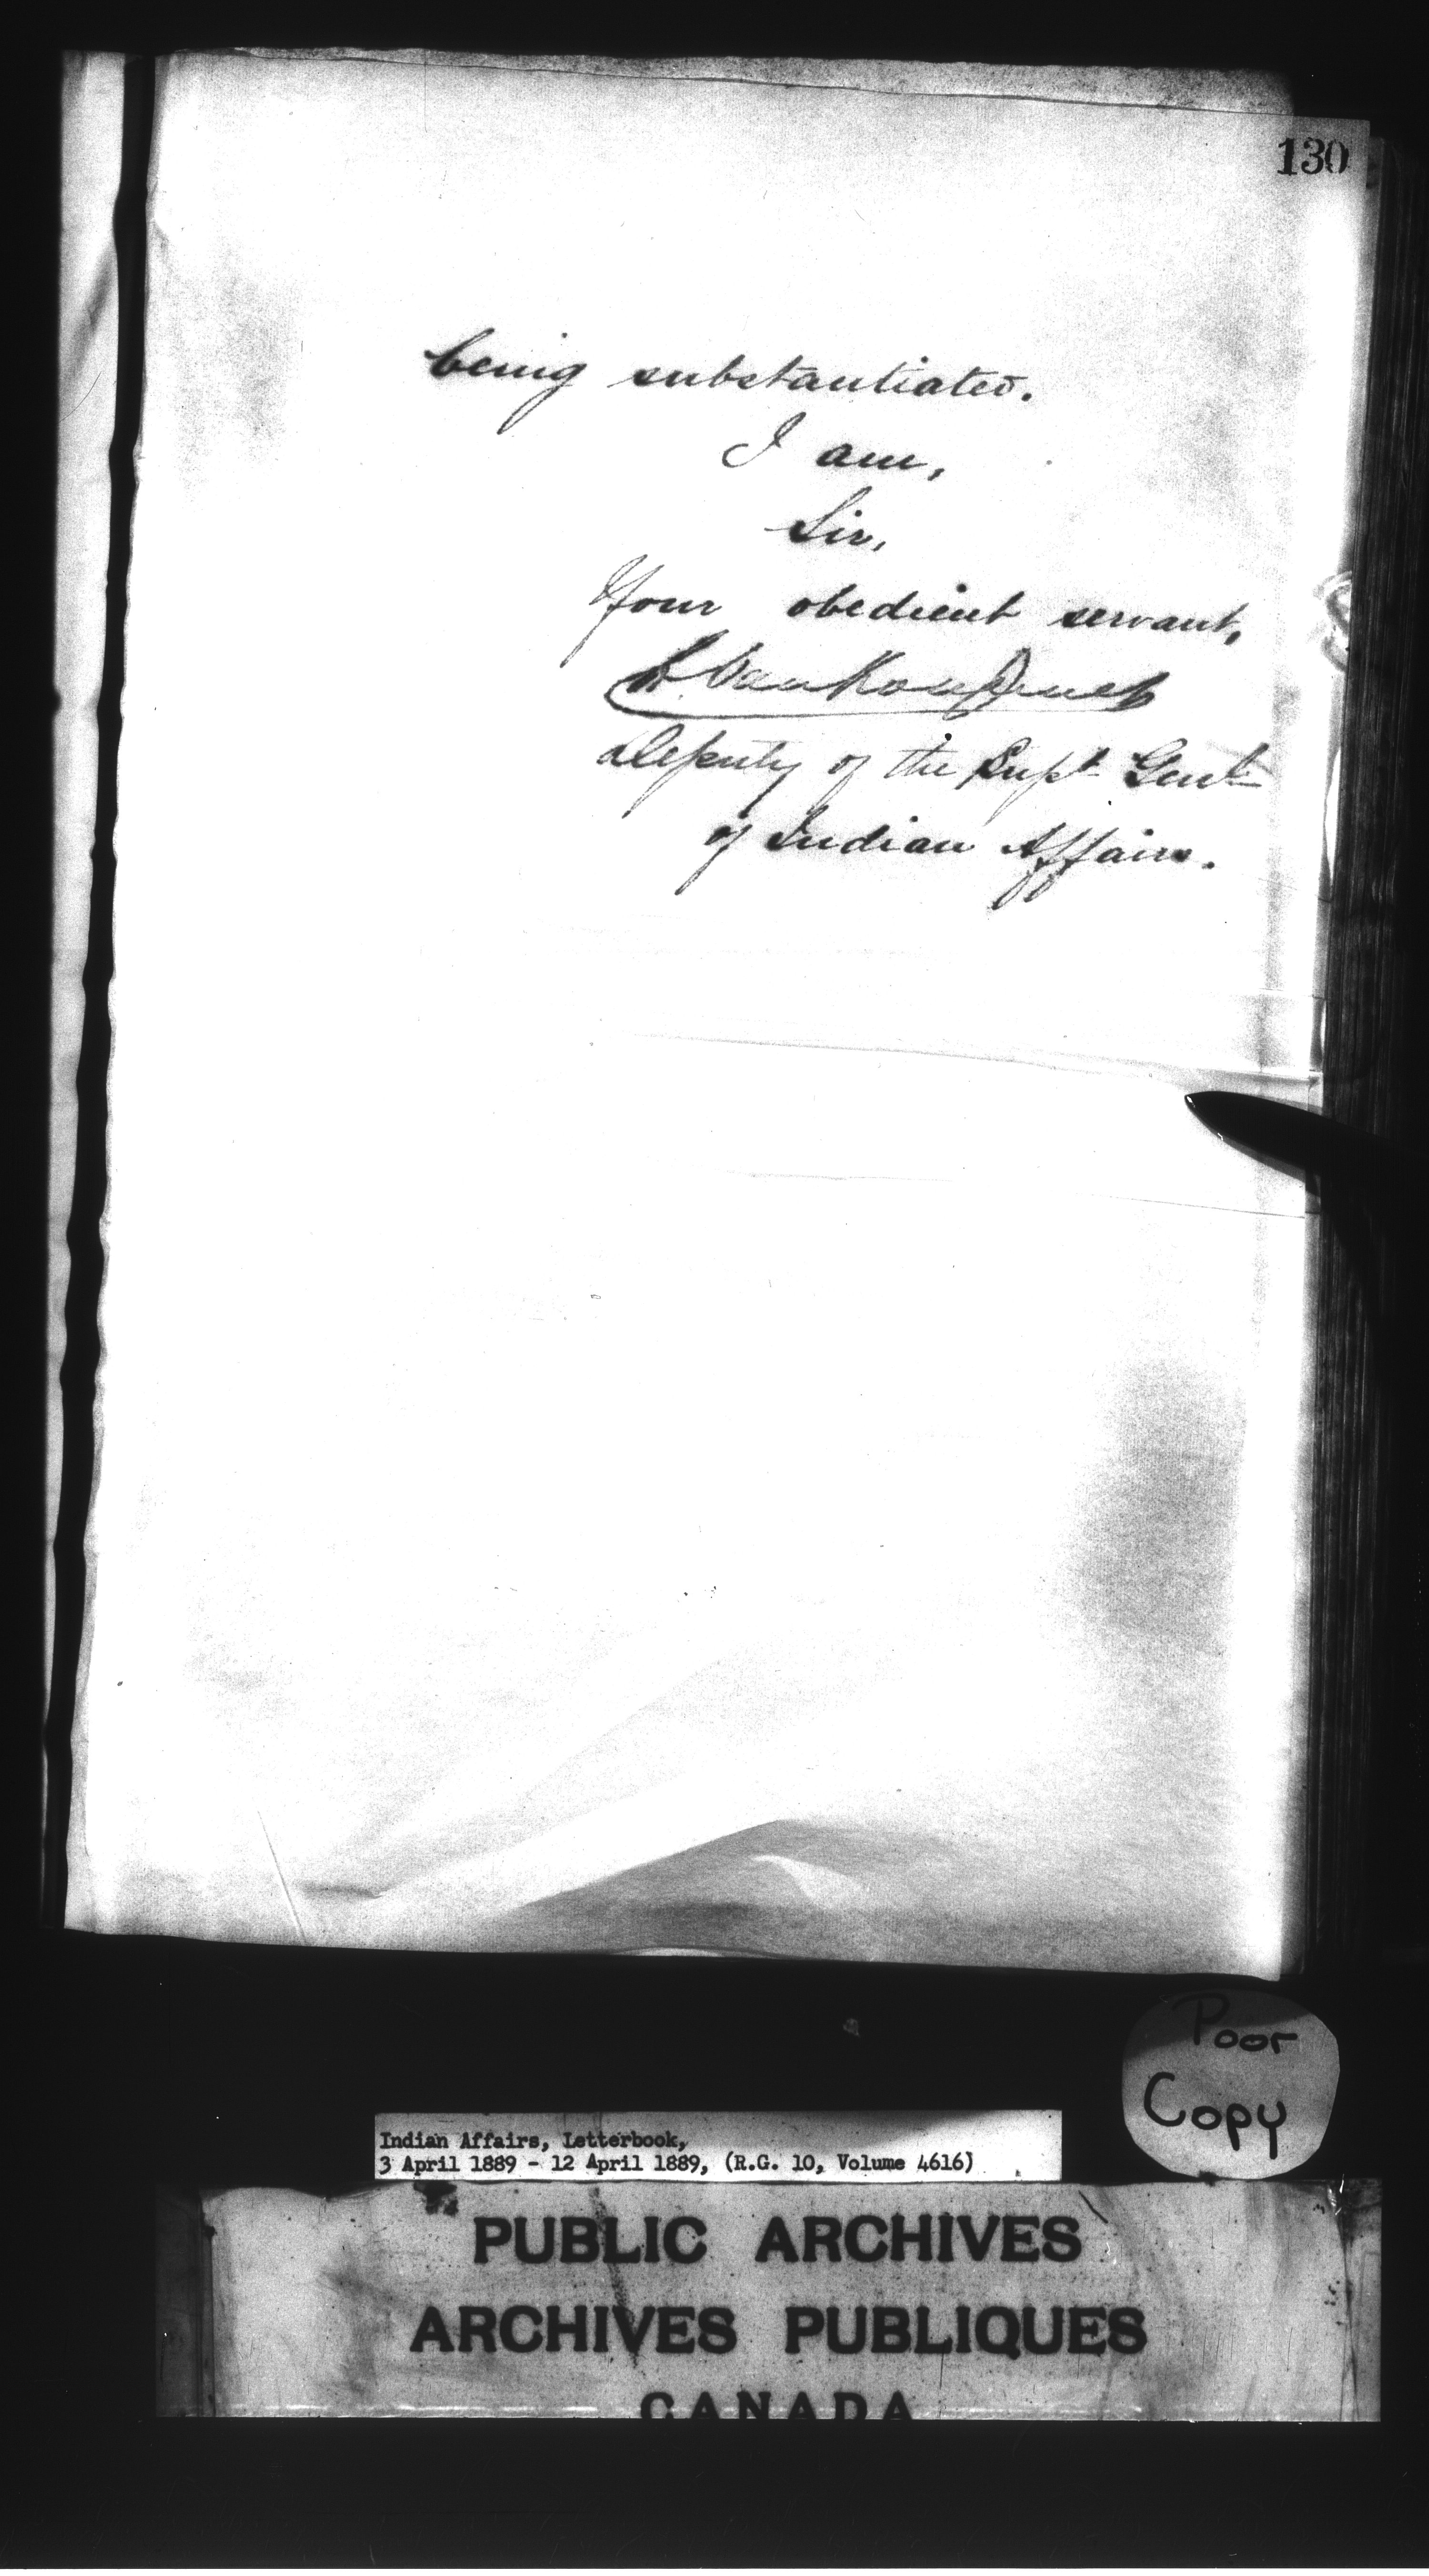 130
being substantiated.
I am,
Sir,
Your obedient servant,
L. VanKoughnet
Deputy of the Supt Genl
of Indian Affairs.
Poor
Copy
Indian Affairs, Letterbook,
3 April 1889 - 12 April 1889, (R.G. 10, Volume 4616)
PUBLIC ARCHIVES
ARCHIVES PUBLIQUES
CANADA